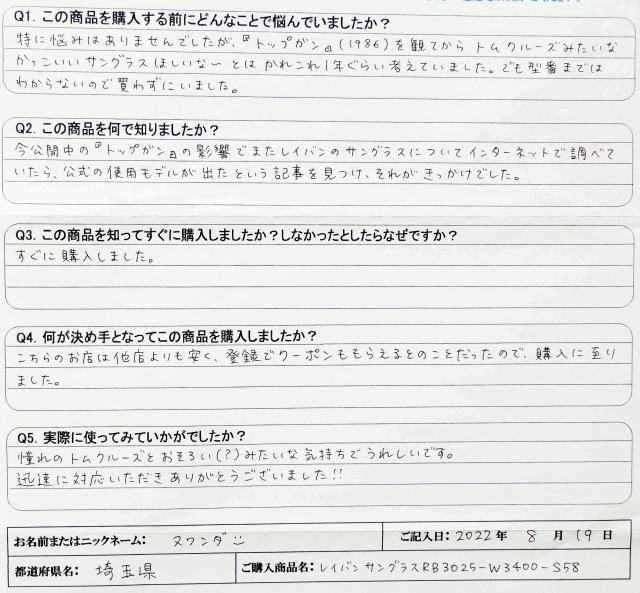 Q1. この商品を購入する前にどんなことで悩んでいましたか？
特に悩みはありませんでしたが、『トップガン』(1986)を観てから トムクルーズみたいな
かっこいい サングラス ほしいな～ とは かれこれ1年ぐらい考えていました。でも型番までは
わからないので買わずにいました。
Q2. この商品を何で知りましたか？
今公開中の『トップガン』の影響でまたレイバンのサングラスについてインターネットで調べて
いたら、公式の使用モデルが出たという記事を見つけ、それがきっかけでした。
Q3. この商品を知ってすぐに購入しましたか？しなかったとしたらなぜですか？
すぐに購入しました。
Q4. 何が決め手となってこの商品を購入しましたか？
こちらのお店は他店よりも安く、登録でクーポンももらえるとのことだったので、購入に至り
ました。
Q5. 実際に使ってみていかがでしたか？
憧れのトムクルーズとおそろい(?)みたいな気持ちでうれしいです。
迅速に対応いただきありがとうございました!!
お名前またはニックネーム： ヌワンダ ご記入日：2022年 8 月 19 日
都道府県名： 埼玉県 ご購入商品名：レイバン サングラスRB3025-W3400-S58